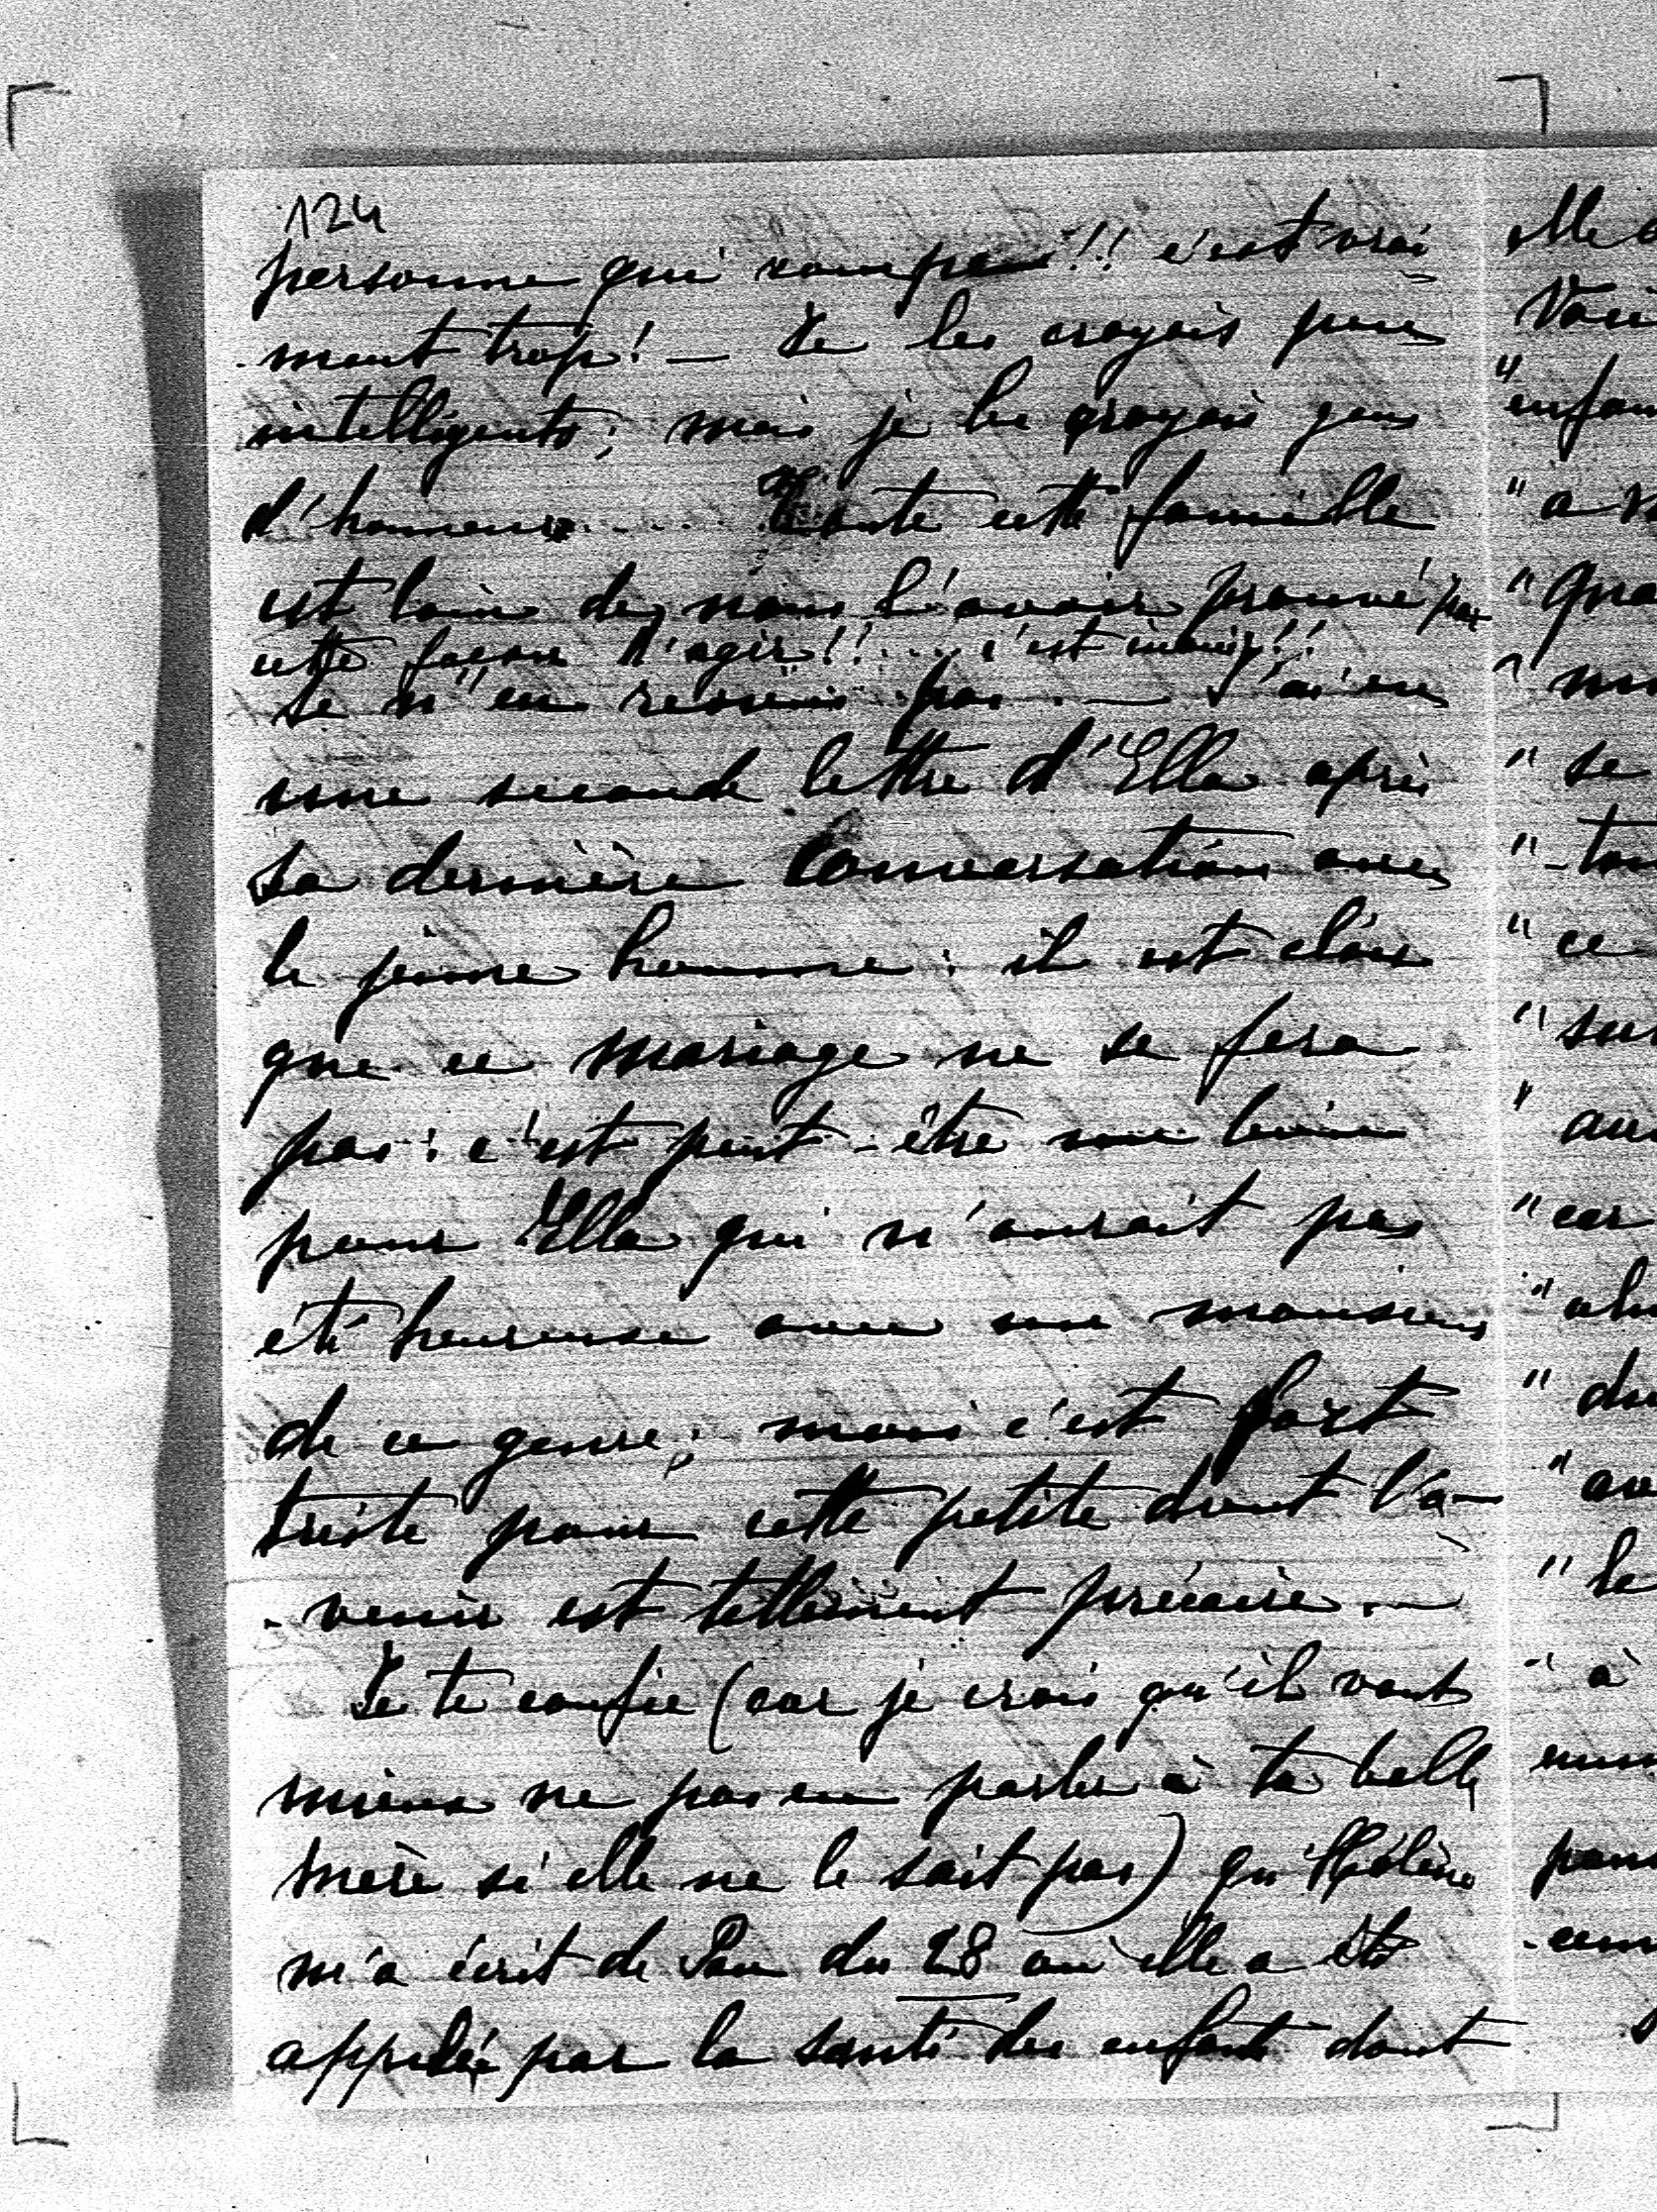 124
personne qui rompu!! c'est vrai
-ment trop! — Je les croyais peu
intelligents; mais je les croyais gens
d'honneur..... Toute cette famille
est loin de nous l'avoir prouvé par
cette façon d'agir!!.... c'est inouï!!
Je n'en reviens pas. — J'ai eu
une seconde lettre d'Ella après
sa dernière conversation avec
le jeune homme: il est clair
que ce mariage ne se fera
pas: c'est peut-être un bien
pour Ella qui n'aurait pas
été heureuse avec un monsieur
de ce genre; mais c'est fort
triste pour cette petite dont l'a-
-venir est tellement précaire. —
Je te confie (car je crois qu'il vaut
mieux ne pas en parler à ta belle
mère si elle ne le sait pas) qu'Hélène
m'a écrit de Pau du 28 où elle a été
appelée par la santé des enfants dont
elle
"enfan
"a
"
"
"se
"-tou
"ce
"
"
"car
"
"du
"
"le
"à